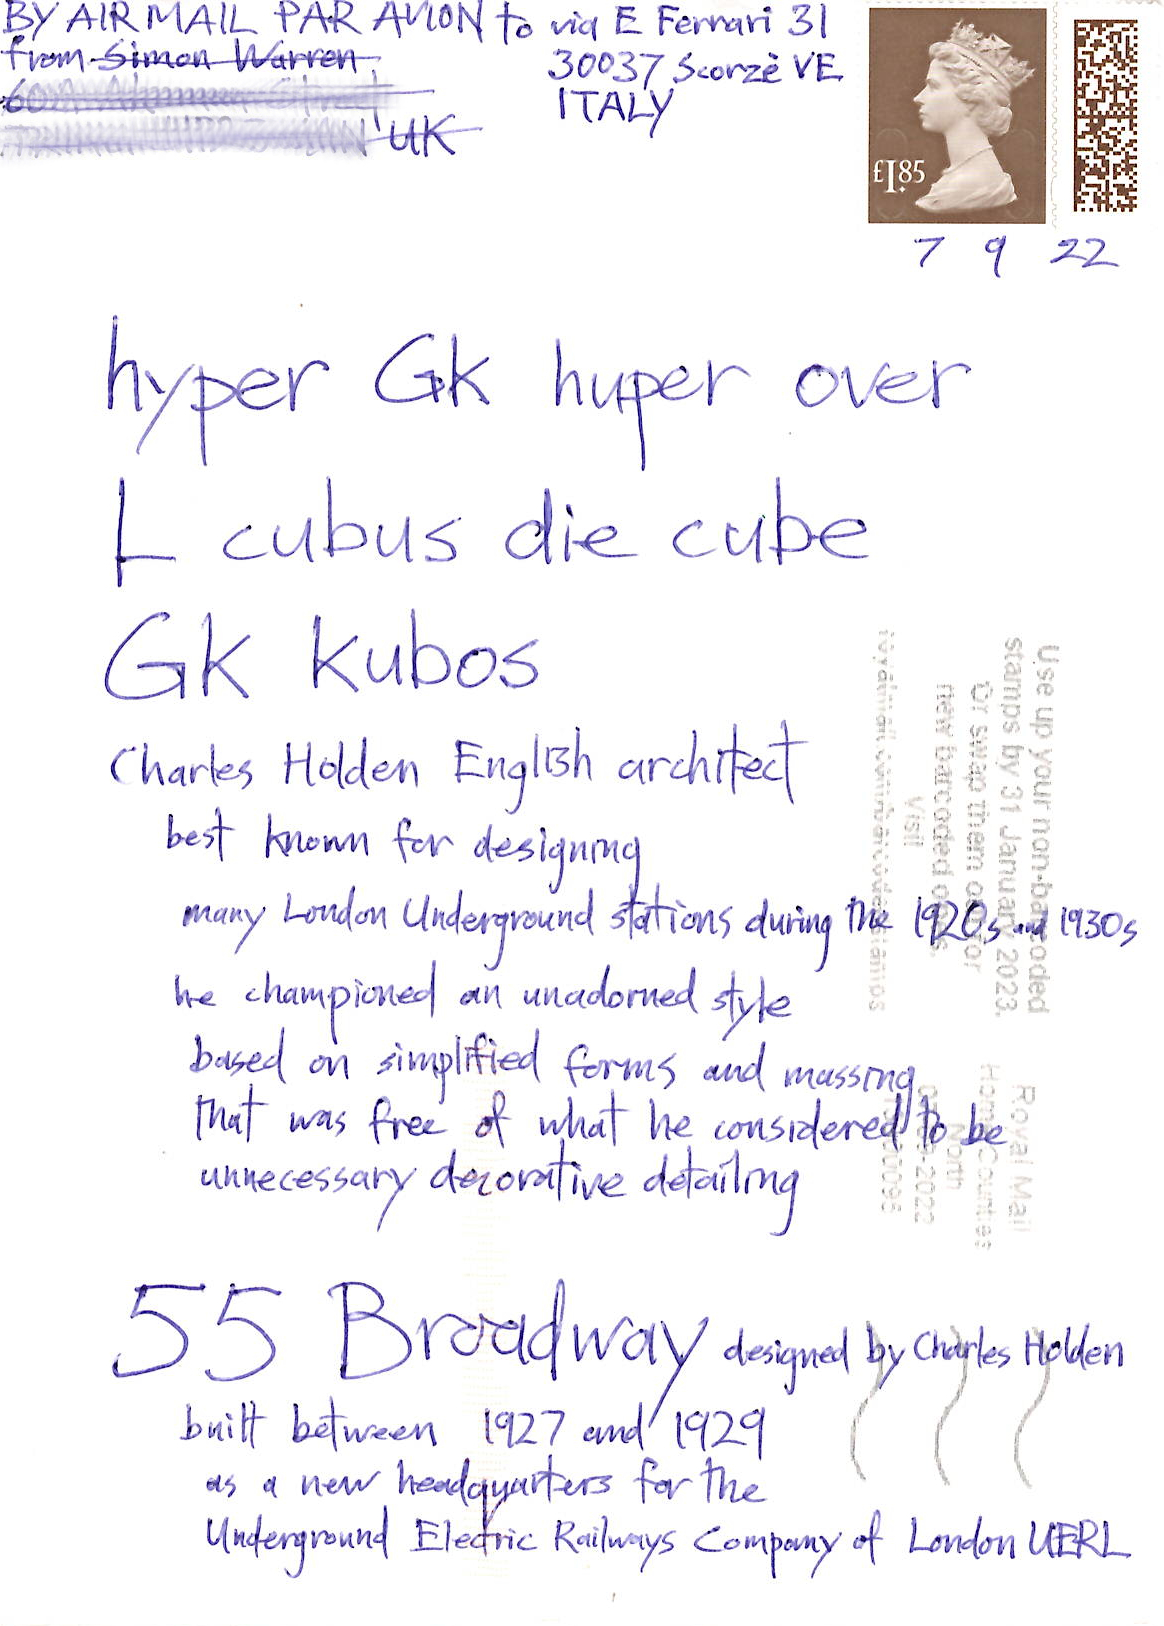 BY AIR MAIL PAR AVION to via E Ferrari 31
from Simon Warren 30037 Scorzè VE
60
ITALY
UK
£1.85
7 9 22
hyper Gk huper over
L cubus die cube
Gk kubos
Charles Holden English architect
best known for designing
many London Underground stations during the 1920s and 1930s
he championed an unadorned style
based on simplified forms and massing
that was free of what he considered to be
unnecessary decorative detailing
55 Broadway designed by Charles Holden
built between 1927 and 1929
as a new headquarters for the
Underground Electric Railways Company of London UERL
Use up your non-barcoded
stamps by 31 January 2023.
Or swap them for
new barcoded
Visit
Royal Mail
Home Counties
North
2022